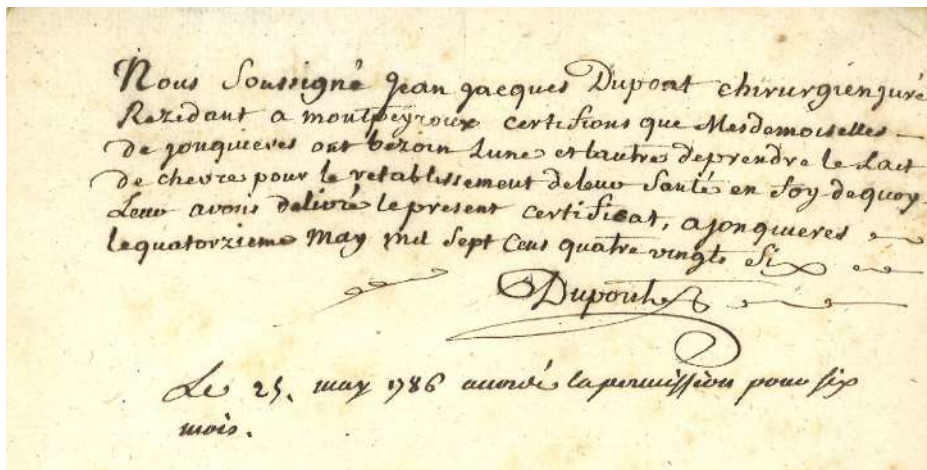 Nous Soussigné Jean Jacques Dupont chirurgien juré
Rezidant a montpeyroux certifions que Mesdemoiselles
de jonquieres ont bezoin Lune et Lautre deprendre le Lait
de chevre pour le retablissement deleur Santé en foy dequoy
Leur avons delivré le present certificat, a jonquieres
lequatorzieme May mil Sept Cens quatre vingts Six
Dupont
Le 25. may 1786 accordé la permission pour six
mois.